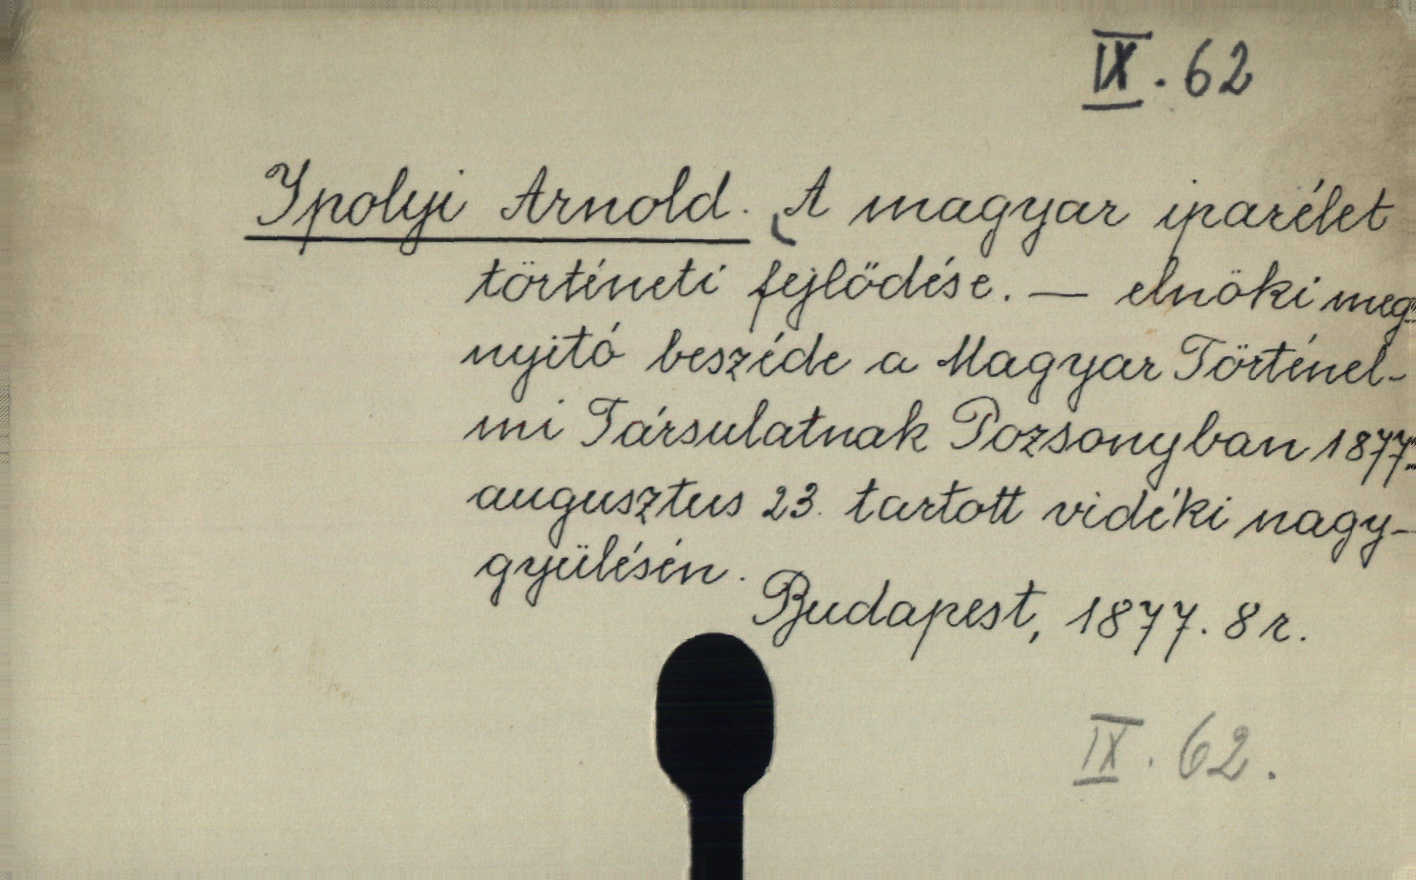 IX. 62
Ipolyi Arnold. A magyar iparélet
történeti fejlődése. — elnöki meg-
nyitó beszéde a Magyar Történel-
mi Társulatnak Pozsonyban 1877.
augusztus 23. tartott vidéki nagy-
gyülésén.
Budapest, 1877. 8 r.
IX. 62.